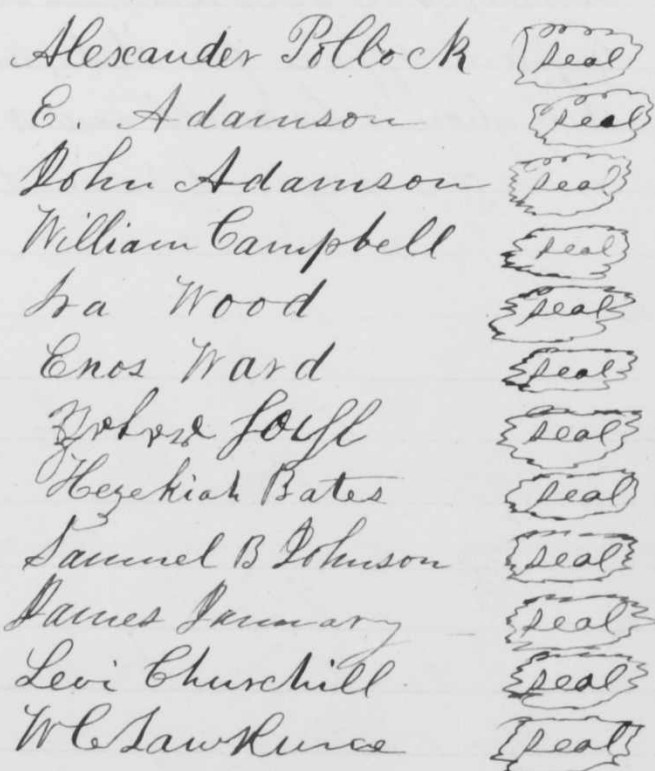 Alexander Pollock seal
E. Adamson seal
John Adamson seal
William Campbell seal
Ira Wood seal
Enos Ward seal
seal
Hezekiah Bates seal
Samuel B Johnson seal
James January seal
Levi Churchill seal
W C Lawrence seal